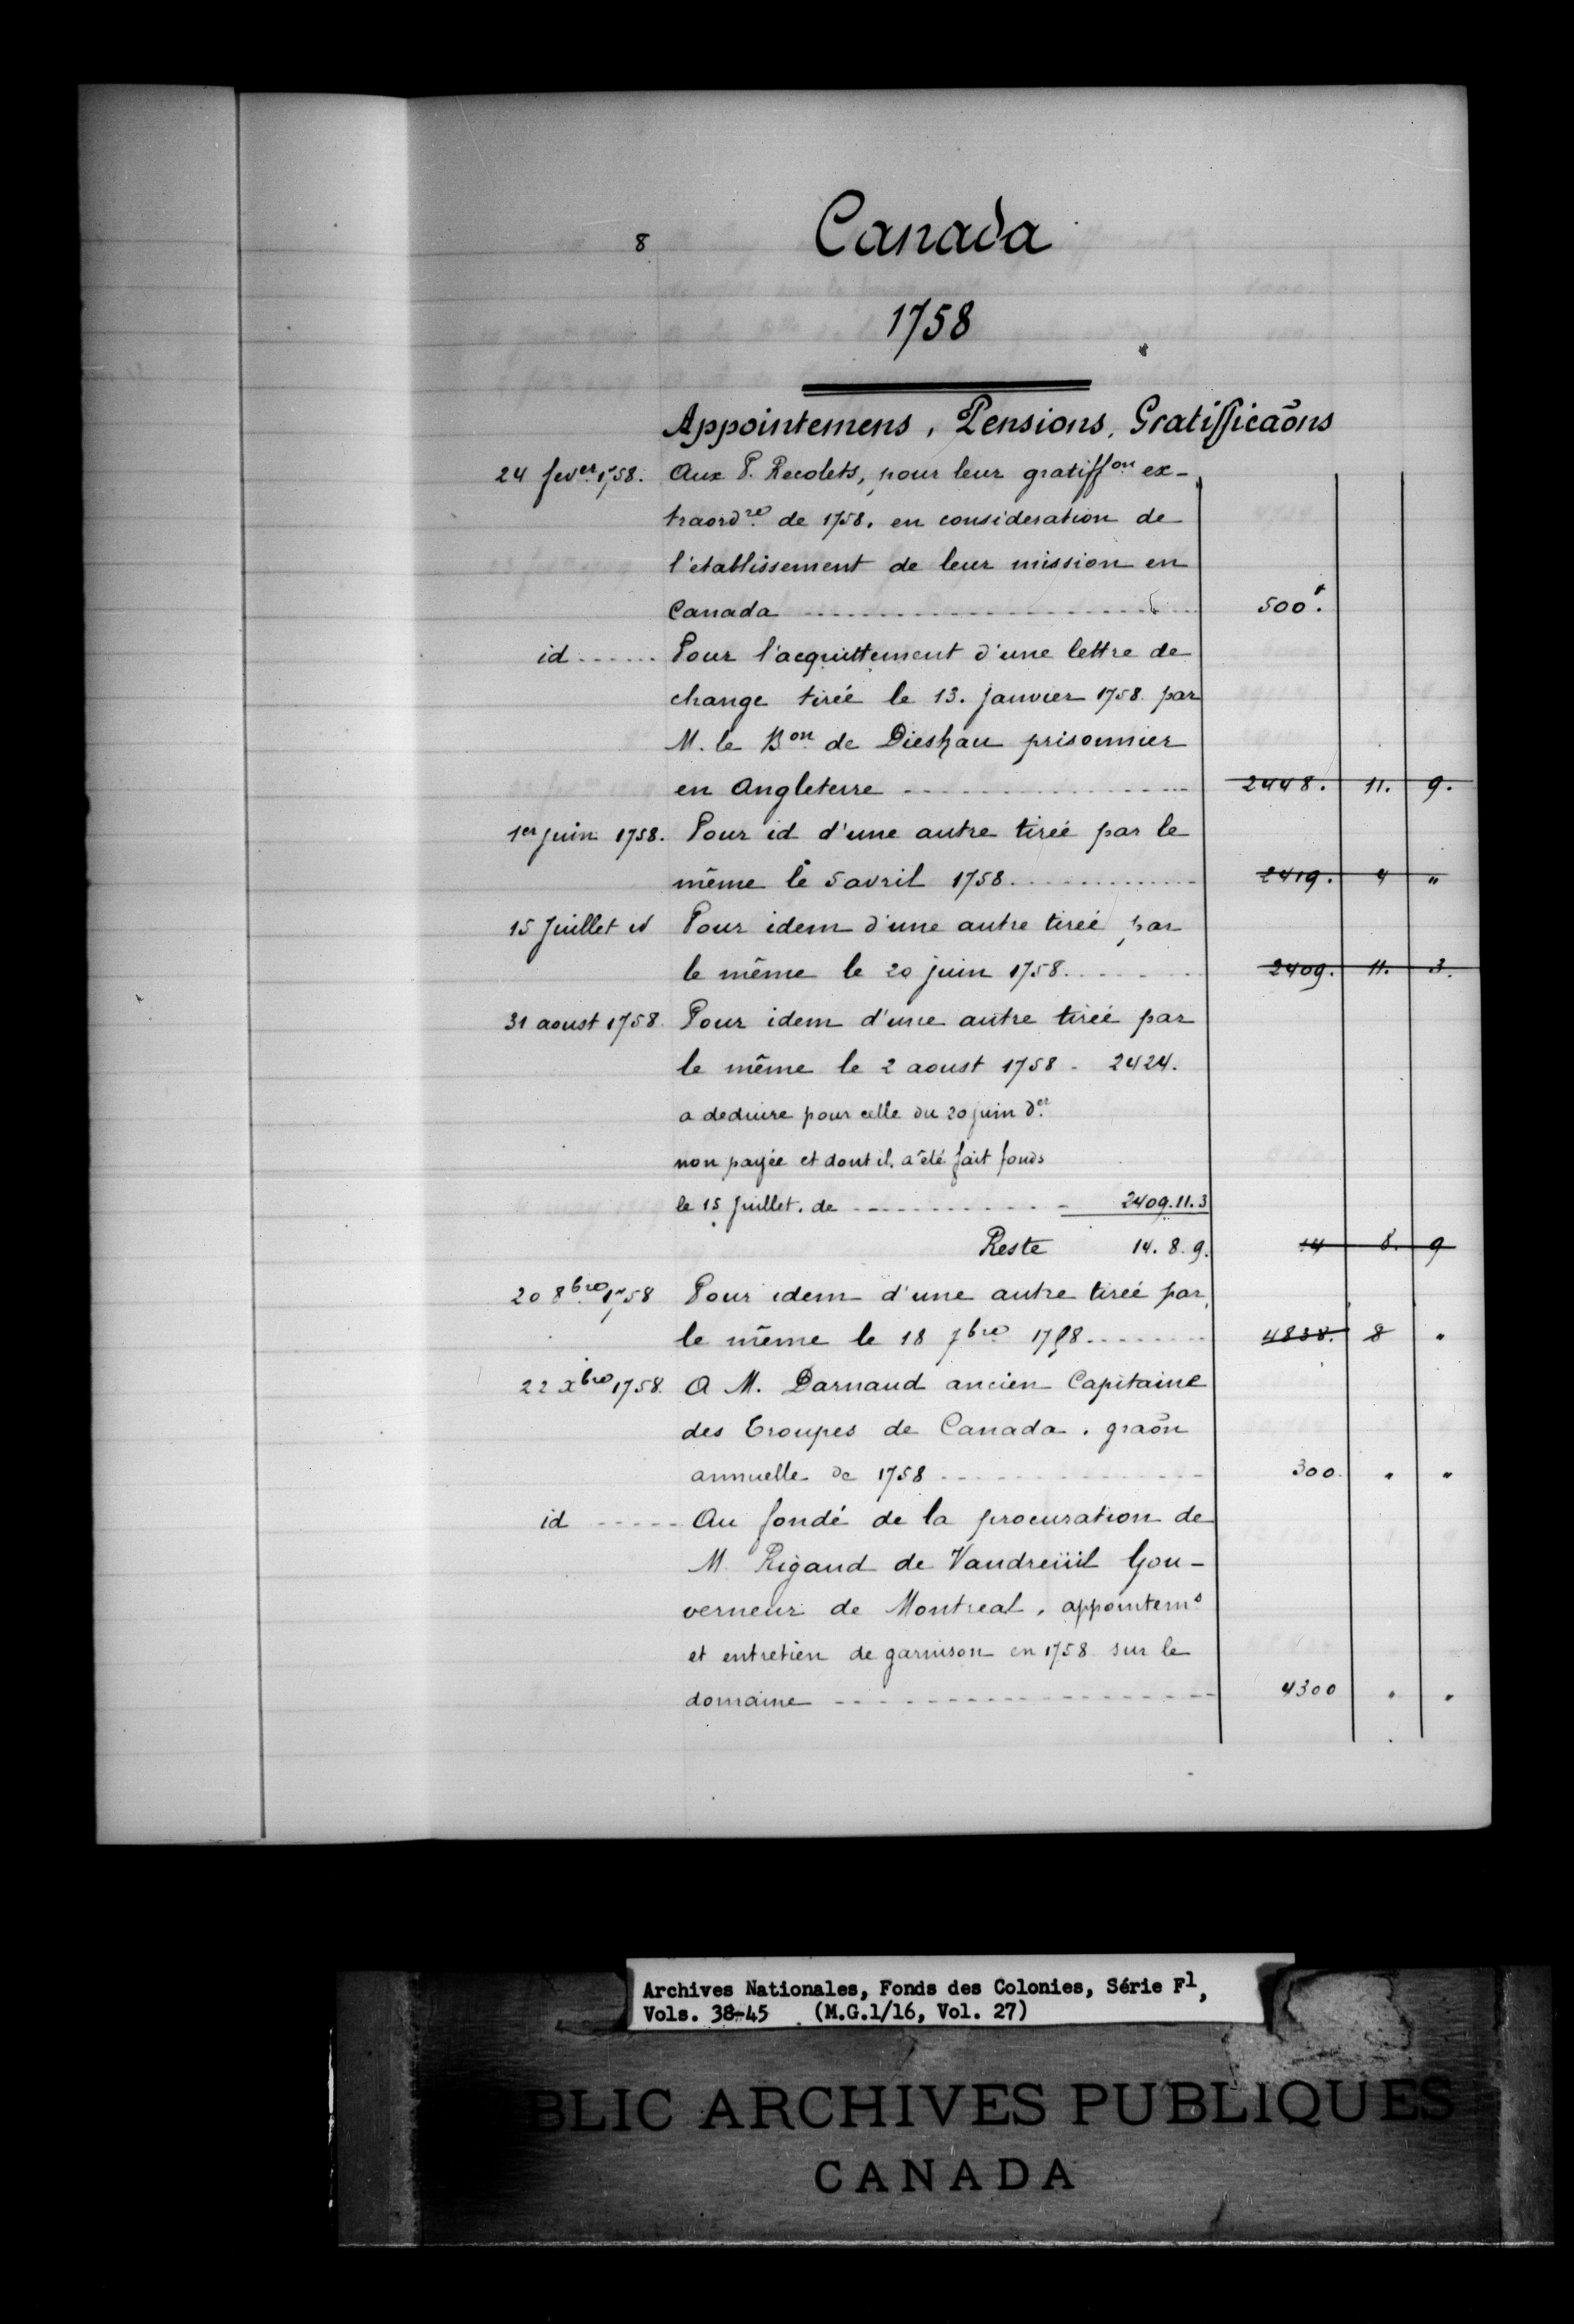 8 Canada
1758
Appointemens, Pensions, Gratifficaõns
24 fever. 1758. Aux P. Recolets, pour leur gratiffon ex-
traordre. de 1758. en consideration de
l'etablissement de leur mission en
Canada 500.
id Pour l'acquittement d'une lettre de
change tirée le 13. janvier 1758 par
M. le Bon de Dieskau prisonnier
en Angleterre 2448. 11. 9.
1er juin 1758. Pour id d'une autre tirée par le
même le 5 avril 1758. 2419. 4 "
15 Juillet id Pour idem d'une autre tirée par
le même le 20 juin 1758. 2409. 11. 3.
31 aoust 1758. Pour idem d'une autre tirée par
le même le 2 aoust 1758 - 2424.
a deduire pour celle du 20 juin der.
non payée et dont il a été fait fonds
le 15 Juillet. de 2409.11.3
Reste 14. 8. 9. 14 8. 9
20 8bre. 1758 Pour idem d'une autre tirée par
le même le 18 7bre 1758 4838. 8 "
22 xbre 1758. A M. Darnaud ancien Capitaine
des Troupes de Canada. graõn
annuelle de 1758 300. " "
id Au fondé de la procuration de
M. Rigaud de Vaudreüil Gou-
verneur de Montreal, appointems
et entretien de garnison en 1758 sur le
domaine 4300 " "
Archives Nationales, Fonds des Colonies, Série F1,
Vols. 38-45 (M.G.1/16, Vol. 27)
BLIC ARCHIVES PUBLIQUES
CANADA